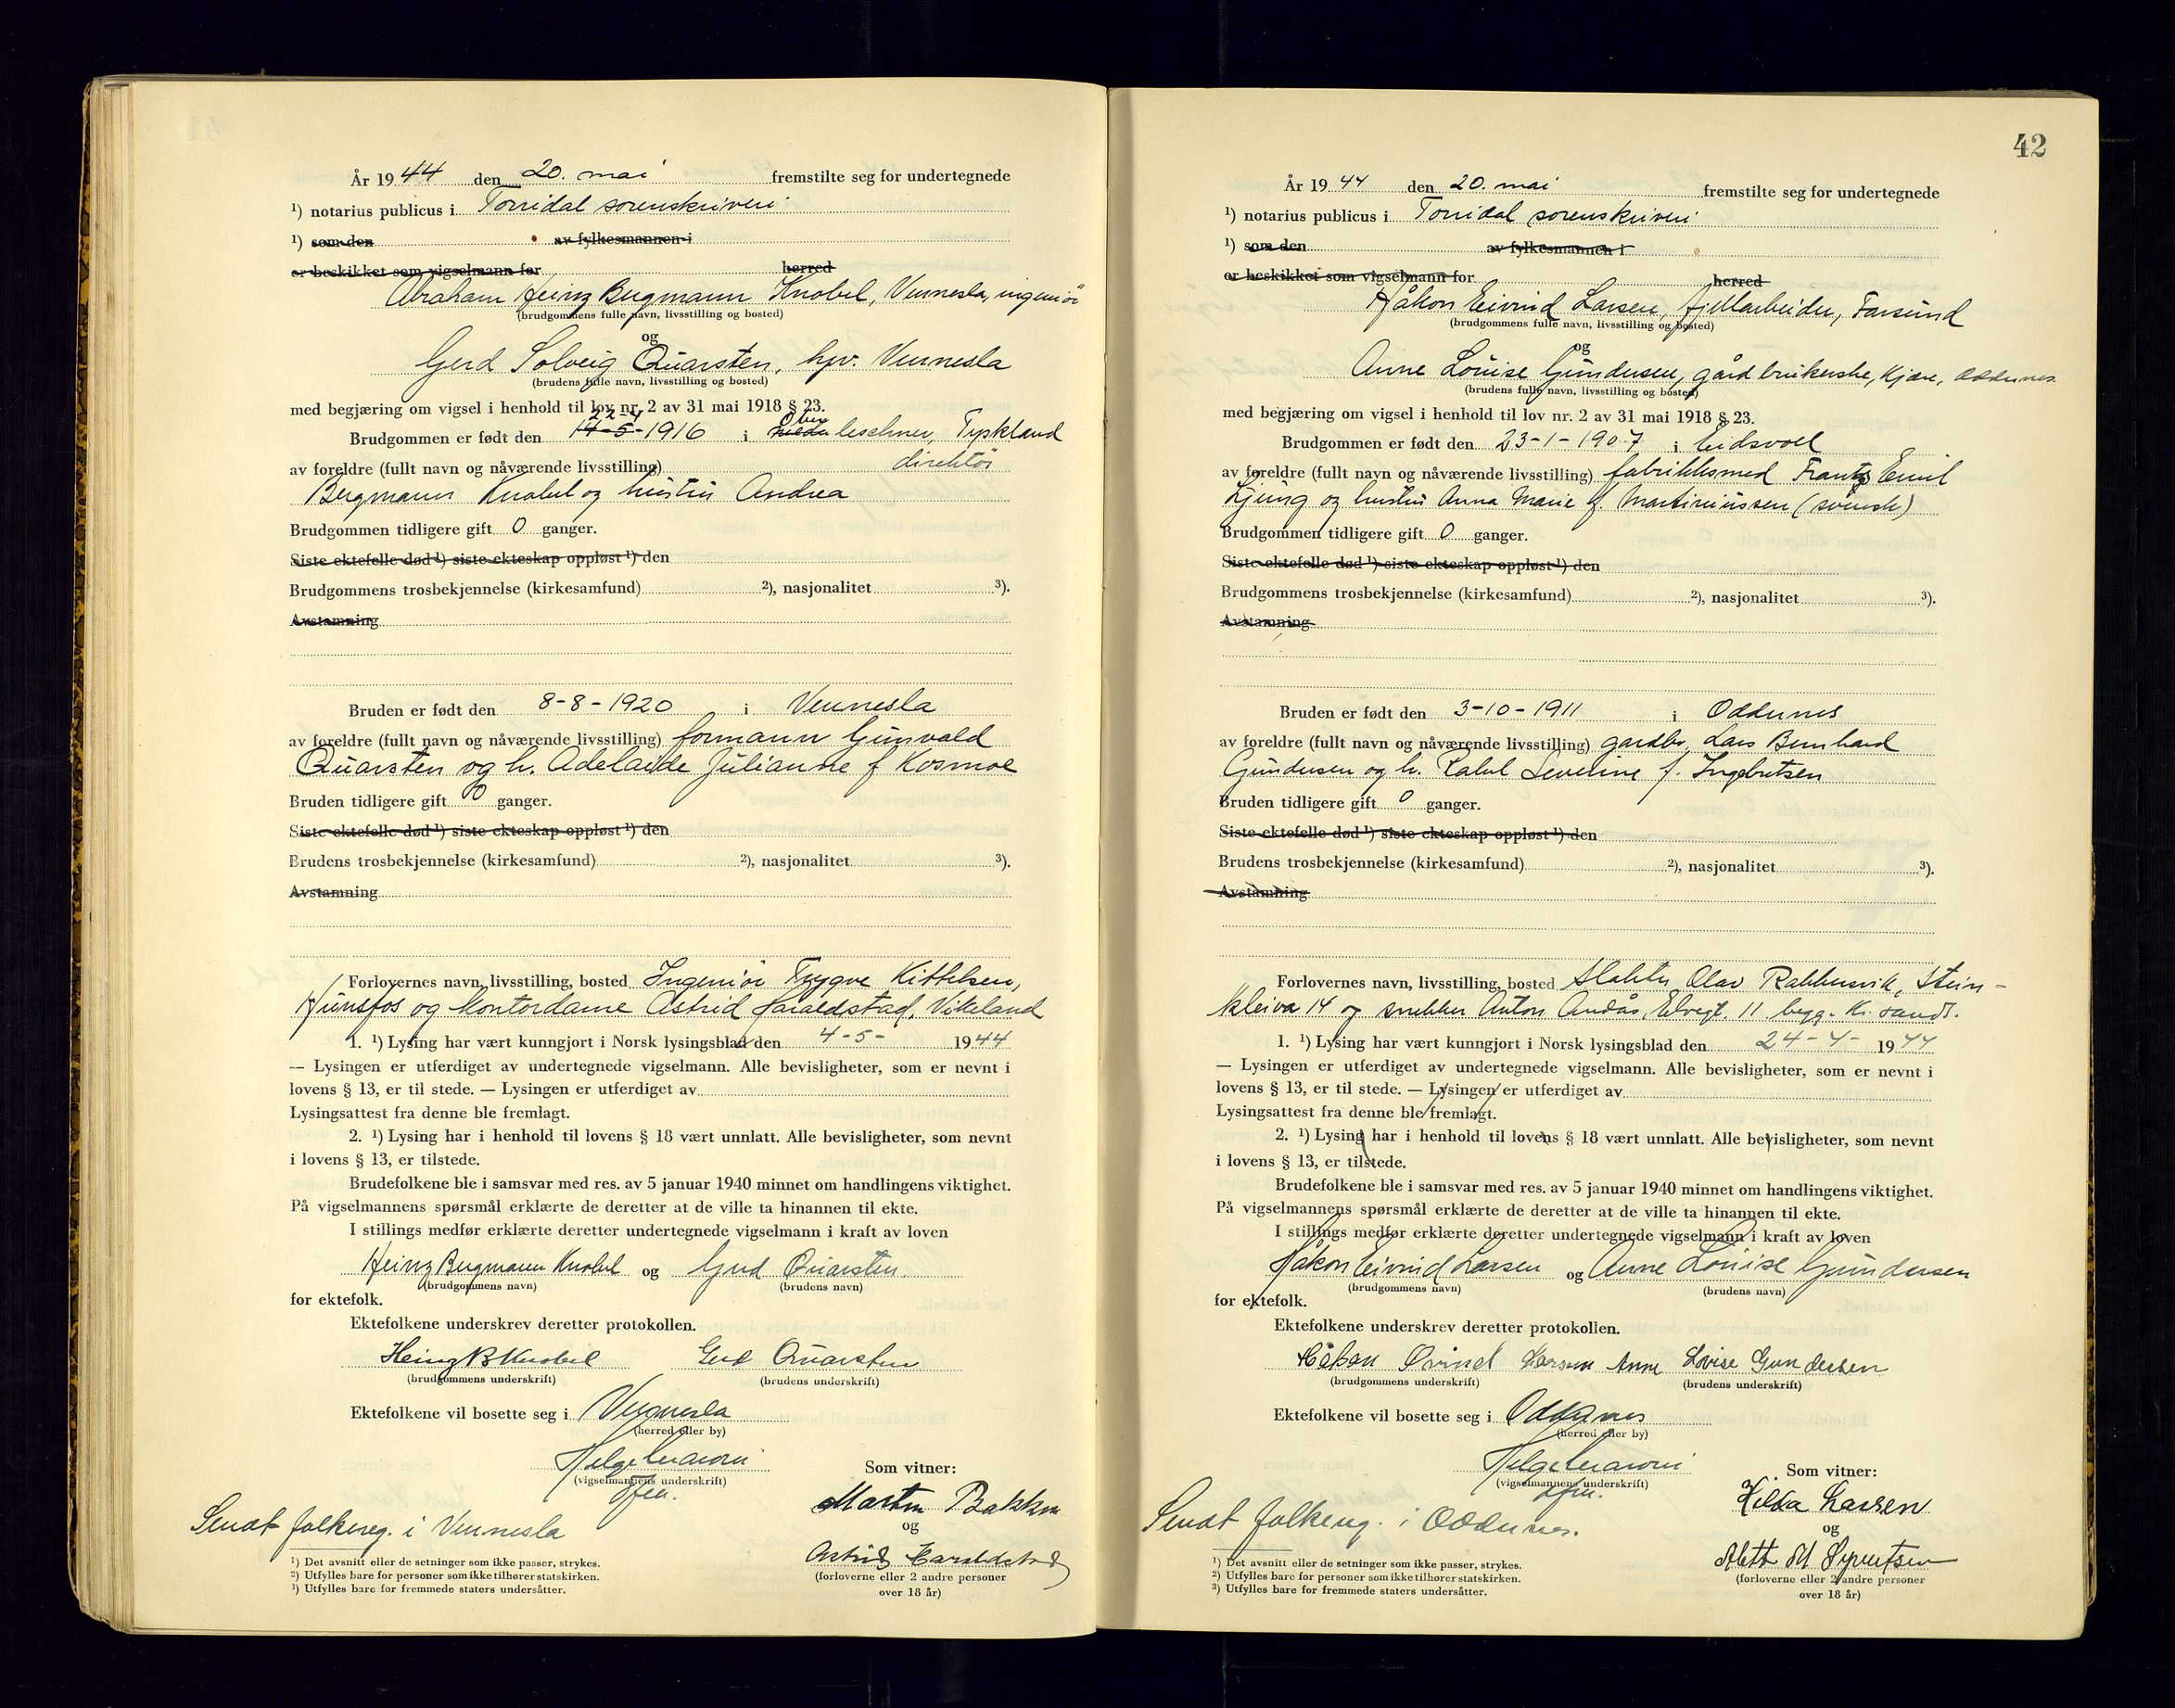 År 1944 den 20. mai fremstilte seg for undertegnede
¹) notarius publicus i Torridal sorenskriveri
¹) som den av fylkesmannen i
er beskikket som vigselmann for herred
Abraham Heinz Bergmann Knobel, Vennesla, ingeniør
(brudgommens fulle navn, livsstilling og bosted)
og
Gerd Solveig Quarsten, hpr. Vennesla
(brudens fulle navn, livsstilling og bosted)
med begjæring om vigsel i henhold til lov nr. 2 av 31 mai 1918 § 23.
22-4
Ober
Brudgommen er født den 14-5-1916 i leschner, Tyskland
av foreldre (fullt navn og nåværende livsstilling) direktør
Bergmann Knobel og hustru Andrea
Brudgommen tidligere gift 0 ganger.
Siste ektefelle død ¹) siste ekteskap oppløst ¹) den
Brudgommens trosbekjennelse (kirkesamfund) ²), nasjonalitet ³).
Avstamning
Bruden er født den 8-8-1920 i Vennesla
av foreldre (fullt navn og nåværende livsstilling) formann Gunvald
Quarsten og h. Adelaide Julianne f Kosmoe
Bruden tidligere gift 0 ganger.
Siste ektefelle død ¹) siste ekteskap oppløst ¹) den
Brudens trosbekjennelse (kirkesamfund) ²), nasjonalitet ³).
Avstamning
Forlovernes navn, livsstilling, bosted Ingeniør Trygve Kittelsen,
Hunsfos og kontordame Astrid Haraldstad, Vikeland
1. ¹) Lysing har vært kunngjort i Norsk lysingsblad den 4-5- 1944
— Lysingen er utferdiget av undertegnede vigselmann. Alle bevisligheter, som er nevnt i
lovens § 13, er til stede. — Lysingen er utferdiget av
Lysingsattest fra denne ble fremlagt.
2. ¹) Lysing har i henhold til lovens § 18 vært unnlatt. Alle bevisligheter, som nevnt
i lovens § 13, er tilstede.
Brudefolkene ble i samsvar med res. av 5 januar 1940 minnet om handlingens viktighet.
På vigselmannens spørsmål erklærte de deretter at de ville ta hinannen til ekte.
I stillings medfør erklærte deretter undertegnede vigselmann i kraft av loven
Heinz Bergmann Knobel og Gerd Quarsten.
(brudgommens navn) (brudens navn)
for ektefolk.
Ektefolkene underskrev deretter protokollen.
Heinz B Knobel Gerd Quarsten
(brudgommens underskrift) (brudens underskrift)
Ektefolkene vil bosette seg i Vennesla
(herred eller by)
Helge
(vigselmannens underskrift)
Som vitner:
Marten Bakken
og
Astrid Haraldstad
(forloverne eller 2 andre personer
over 18 år)
Sendt folkereg. i Vennesla
¹) Det avsnitt eller de setninger som ikke passer, strykes.
²) Utfylles bare for personer som ikke tilhører statskirken.
³) Utfylles bare for fremmede staters undersåtter.
42
År 1944 den 20. mai fremstilte seg for undertegnede
¹) notarius publicus i Torridal sorenskriveri
¹) som den av fylkesmannen i
er beskikket som vigselmann for herred
Håkon Eivind Larsen, fjellarbeider, Farsund
(brudgommens fulle navn, livsstilling og bosted)
og
Anne Louise Gundersen, gårdbrukerske, Kjøre, Oddernes
(brudens fulle navn, livsstilling og bosted)
med begjæring om vigsel i henhold til lov nr. 2 av 31 mai 1918 § 23.
Brudgommen er født den 23-1-1907 i Eidsvoll
av foreldre (fullt navn og nåværende livsstilling) fabrikksmed Frantz Emil
Ljung og hustru Anna Marie f. Martiniussen (svensk)
Brudgommen tidligere gift 0 ganger.
Siste ektefelle død ¹) siste ekteskap oppløst ¹) den
Brudgommens trosbekjennelse (kirkesamfund) ²), nasjonalitet ³).
Avstamning
Bruden er født den 3-10-1911 i Oddernes
av foreldre (fullt navn og nåværende livsstilling) gardbr. Lars Bernhard
Gundersen og h. Severine f. Ingebretsen
Bruden tidligere gift 0 ganger.
Siste ektefelle død ¹) siste ekteskap oppløst ¹) den
Brudens trosbekjennelse (kirkesamfund) ²), nasjonalitet ³).
Avstamning
Forlovernes navn, livsstilling, bosted Olav Rabbersvik, Stein-
kleiva 14 og snekker Anton Andås, Elvegt. 11 begge Kr. sand S.
1. ¹) Lysing har vært kunngjort i Norsk lysingsblad den 24-4- 1944
— Lysingen er utferdiget av undertegnede vigselmann. Alle bevisligheter, som er nevnt i
lovens § 13, er til stede. — Lysingen er utferdiget av
Lysingsattest fra denne ble fremlagt.
2. ¹) Lysing har i henhold til lovens § 18 vært unnlatt. Alle bevisligheter, som nevnt
i lovens § 13, er tilstede.
Brudefolkene ble i samsvar med res. av 5 januar 1940 minnet om handlingens viktighet.
På vigselmannens spørsmål erklærte de deretter at de ville ta hinannen til ekte.
I stillings medfør erklærte deretter undertegnede vigselmann i kraft av loven
Håkon Eivind Larsen og Anne Louise Gundersen
(brudgommens navn) (brudens navn)
for ektefolk.
Ektefolkene underskrev deretter protokollen.
Håkon Øvind Larsen Anne Lovise Gundersen
(brudgommens underskrift) (brudens underskrift)
Ektefolkene vil bosette seg i Oddernes
(herred eller by)
Helge
(vigselmannens underskrift)
Som vitner:
Hilda Larsen
og
Aletth M Syvertsen
(forloverne eller 2 andre personer
over 18 år)
Sendt folkereg. i Oddernes.
¹) Det avsnitt eller de setninger som ikke passer, strykes.
²) Utfylles bare for personer som ikke tilhører statskirken.
³) Utfylles bare for fremmede staters undersåtter.